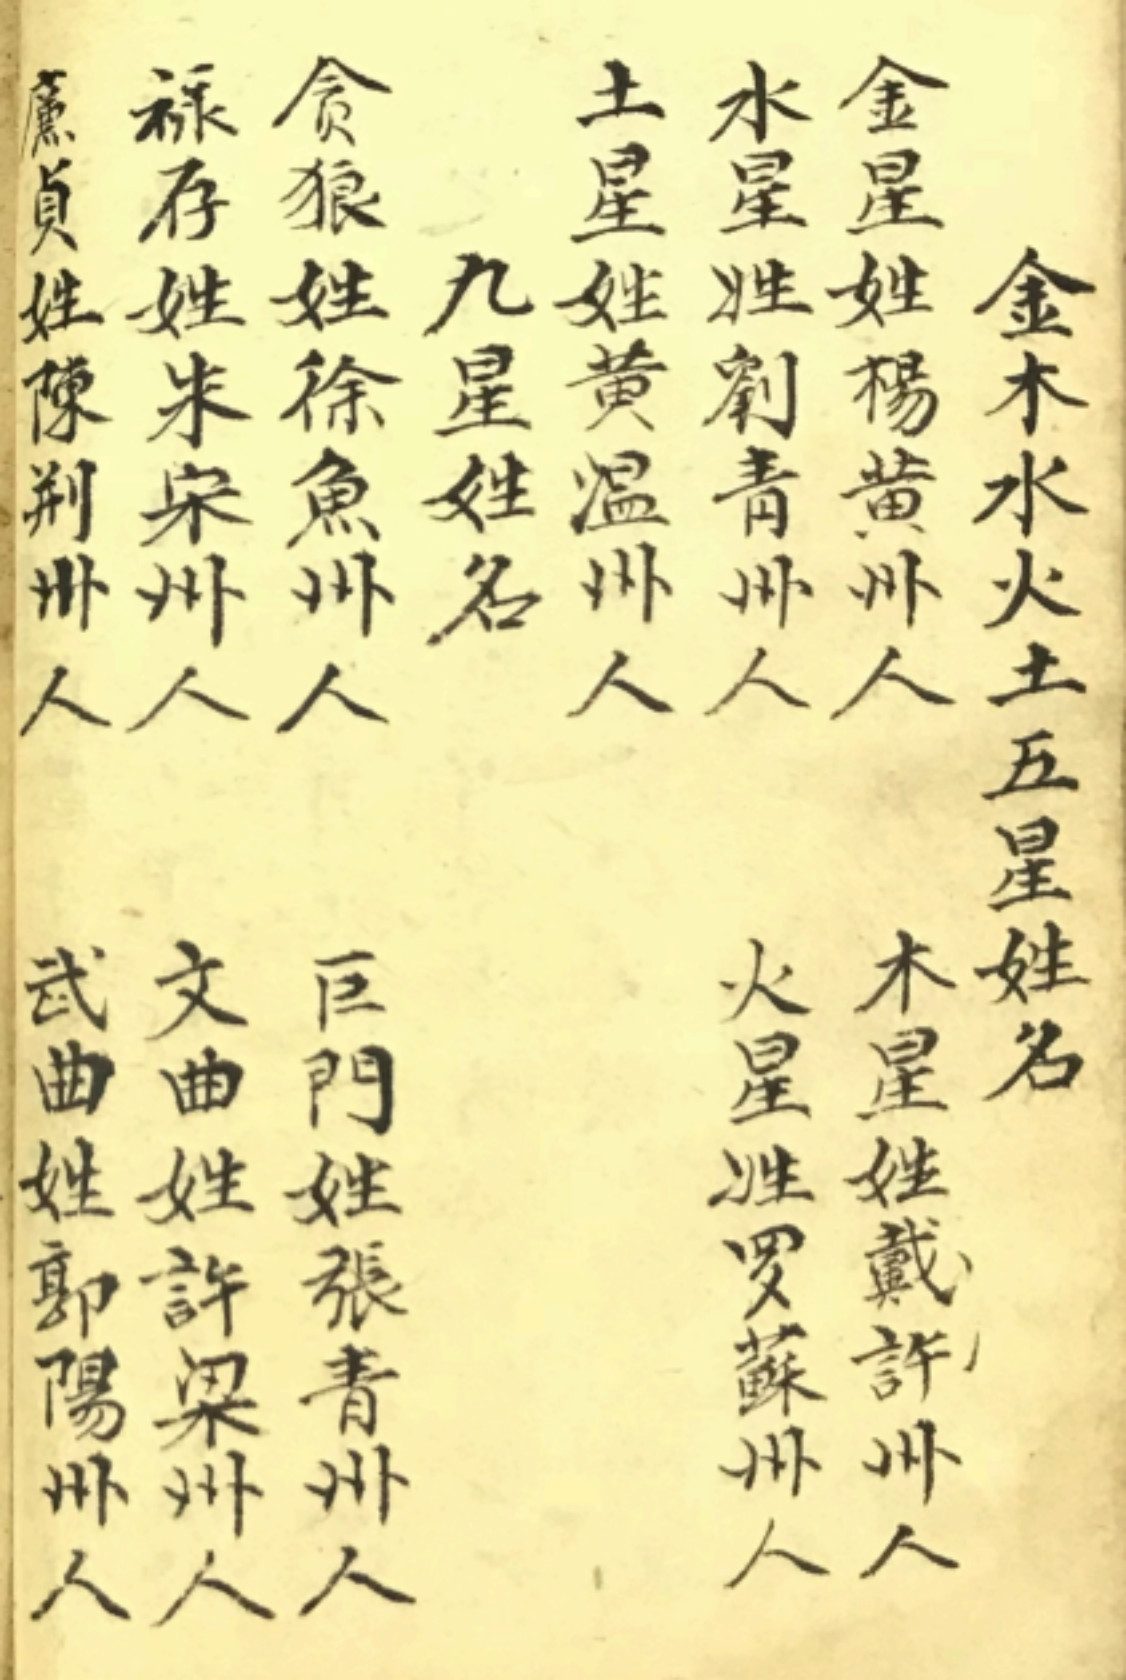 金木水火土五星姓名
金星姓楊黄州人　木星姓戴許州人
水星姓劉青州人　火星姓罗蘇州人
土星姓黄温州人
九星姓名
贪狼姓徐魚州人　巨門姓張青州人
禄存姓朱宋州人　文曲姓許梁州人
廉貞姓陳荆州人　武曲姓郭陽州人